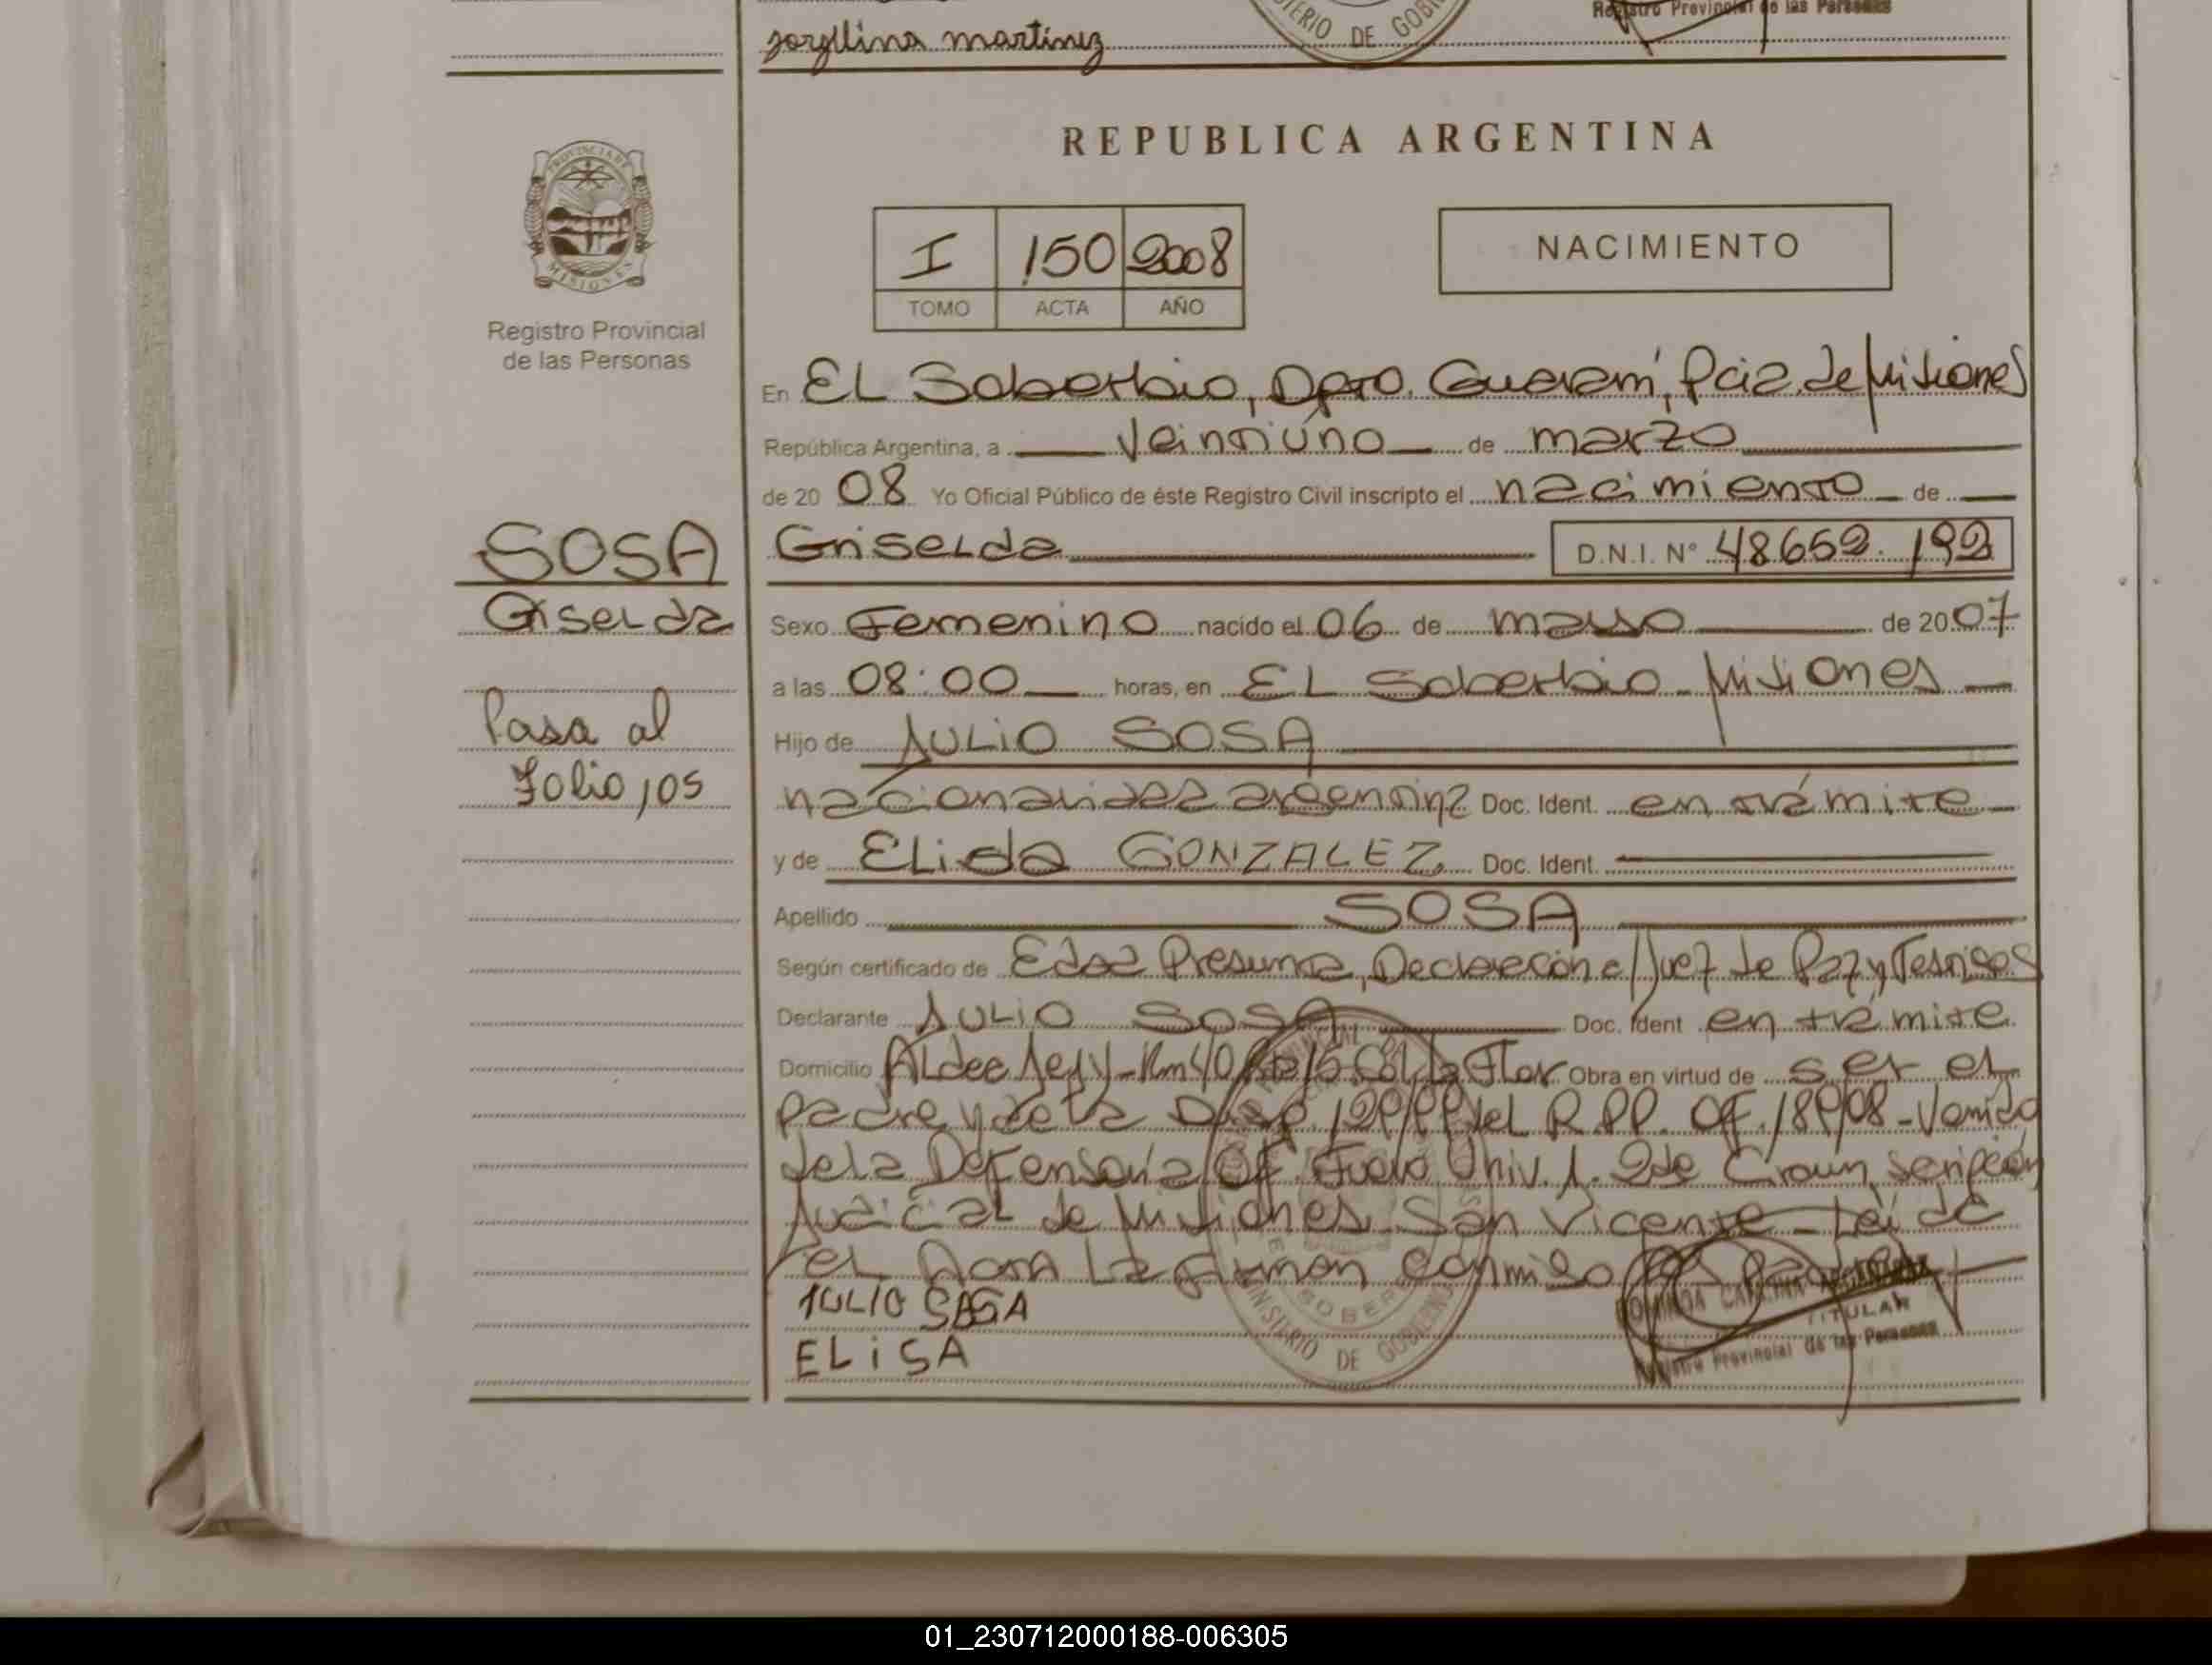 Registro Provincial de las Personas
MINISTERIO DE GOBI
martinez
REPUBLICA ARGENTINA
PROVINCIA DE
MISIONES
Registro Provincial
de las Personas
I 150 2008
TOMO ACTA AÑO
NACIMIENTO
En EL Soberbio, Dpto. Guaraní, Pcia. de Misiones
República Argentina, a veintiuno de marzo
de 20 08 Yo Oficial Público de éste Registro Civil inscripto el nacimiento de
SOSA
Griselda D.N.I. N° 48652.192
Griselda
Sexo Femenino nacido el 06 de mayo de 2007
a las 08:00 horas, en EL Soberbio - Misiones
Pasa al
Folio 105
Hijo de JULIO SOSA
nacionalidad argentina Doc. Ident. en trámite
y de ELida GONZALEZ Doc. Ident.
Apellido SOSA
Según certificado de Edad Presunta, Declaración e/Juez de Paz y Testigos
Declarante JULIO SOSA Doc. Ident en trámite
Domicilio ALdea Km 40 La Flor Obra en virtud de ser el
padre y de la Disp. 129/99 del R.P.P. OF. 189/08 - Venido
de la Defensoría OF. Fuero Univ. 1. 2de Circunscripción
Judicial de Misiones San Vicente - Leída
el Acta La Firman Conmigo
JULIO SASA
ELiSA
TITULAR
Registro Provincial de las Personas
MINISTERIO DE GOBIERNO
01_230712000188-006305